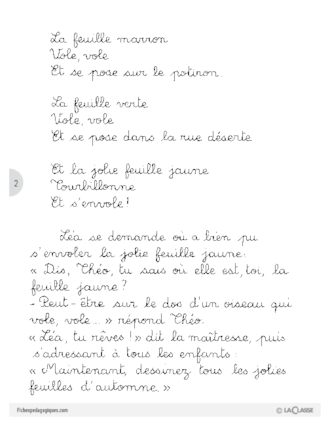 La feuille marron
Vole, vole
Et se pose sur le potiron.
La feuille verte
Vole, vole
Et se pose dans la rue déserte
Et la jolie feuille jaune
Tourbillonne
Et s'envole !
2
Léa se demande où a bien pu
s'envoler la jolie feuille jaune :
« Dis, Théo, tu sais où elle est, toi, la
feuille jaune ?
- Peut-être sur le dos d'un oiseau qui
vole, vole... » répond Théo.
« Léa, tu rêves ! » dit la maîtresse, puis
s'adressant à tous les enfants :
« Maintenant, dessinez tous les jolies
feuilles d'automne. »
Fichespedagogiques.com
© LACLASSE